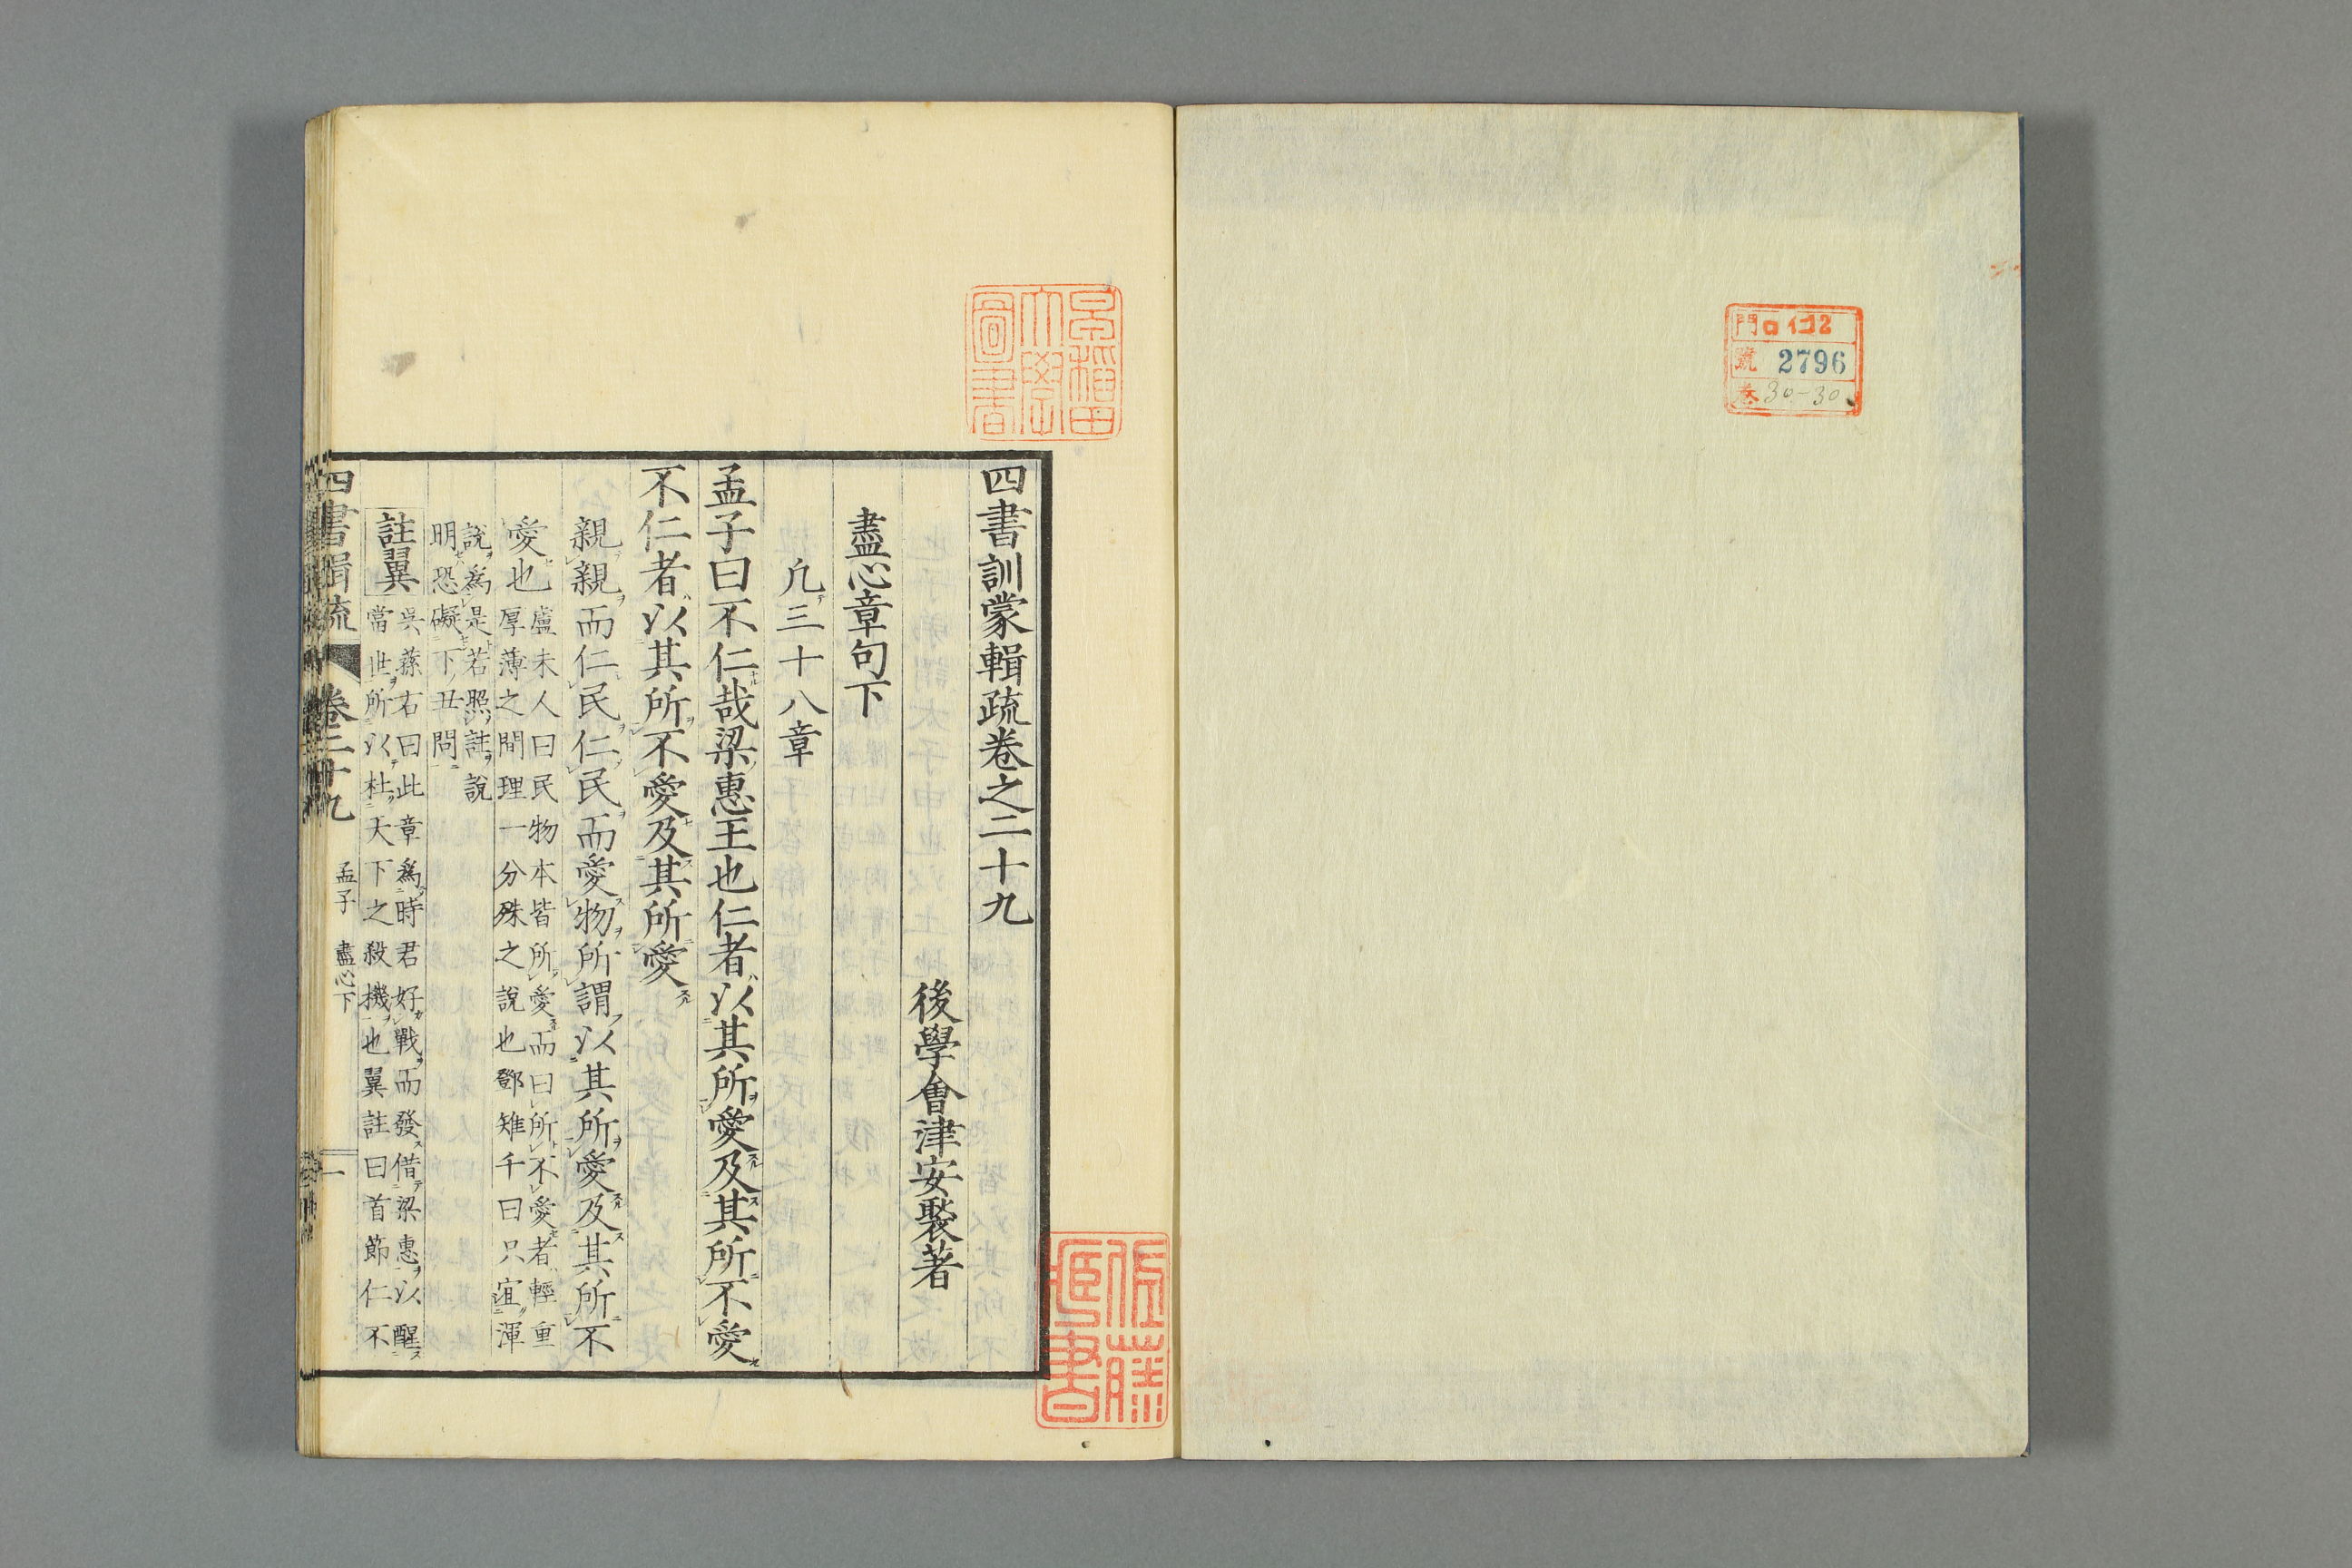 門 ロ 12
號 2796
巻 30-30
早稲田
大學
圖書
四書訓蒙輯疏卷之二十九
後學會津安褧著
盡心章句下
凡三十八章
孟子曰不仁哉梁惠王也仁者以其所愛及其所不愛
不仁者以其所不愛及其所愛
親親而仁民仁民而愛物所謂以其所愛及其所不
愛也
盧未人曰民物本皆所愛而曰所不愛者輕重
厚薄之間理一分殊之說也鄧雉千曰只宜渾
說爲是若照註說
明恐礙下丑問
註翼
吳蓀右曰此章爲時君好戰而發借梁惠以醒
當世所以杜天下之殺機也翼註曰首節仁不
四書輯疏 卷二十九 孟子 盡心下 一
佐藤
書